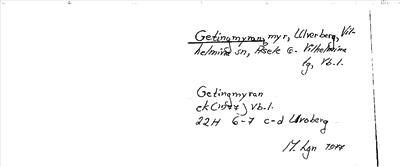 Getingmyran, myr, Ulvberg, Vil-
helmina sn, Åsele o. Vilhelmina
lg, Vb.l.
Getingmyran
ek (1977) Vb.l.
22H 6-7 c-d Ulvoberg
M. Lgn 1977